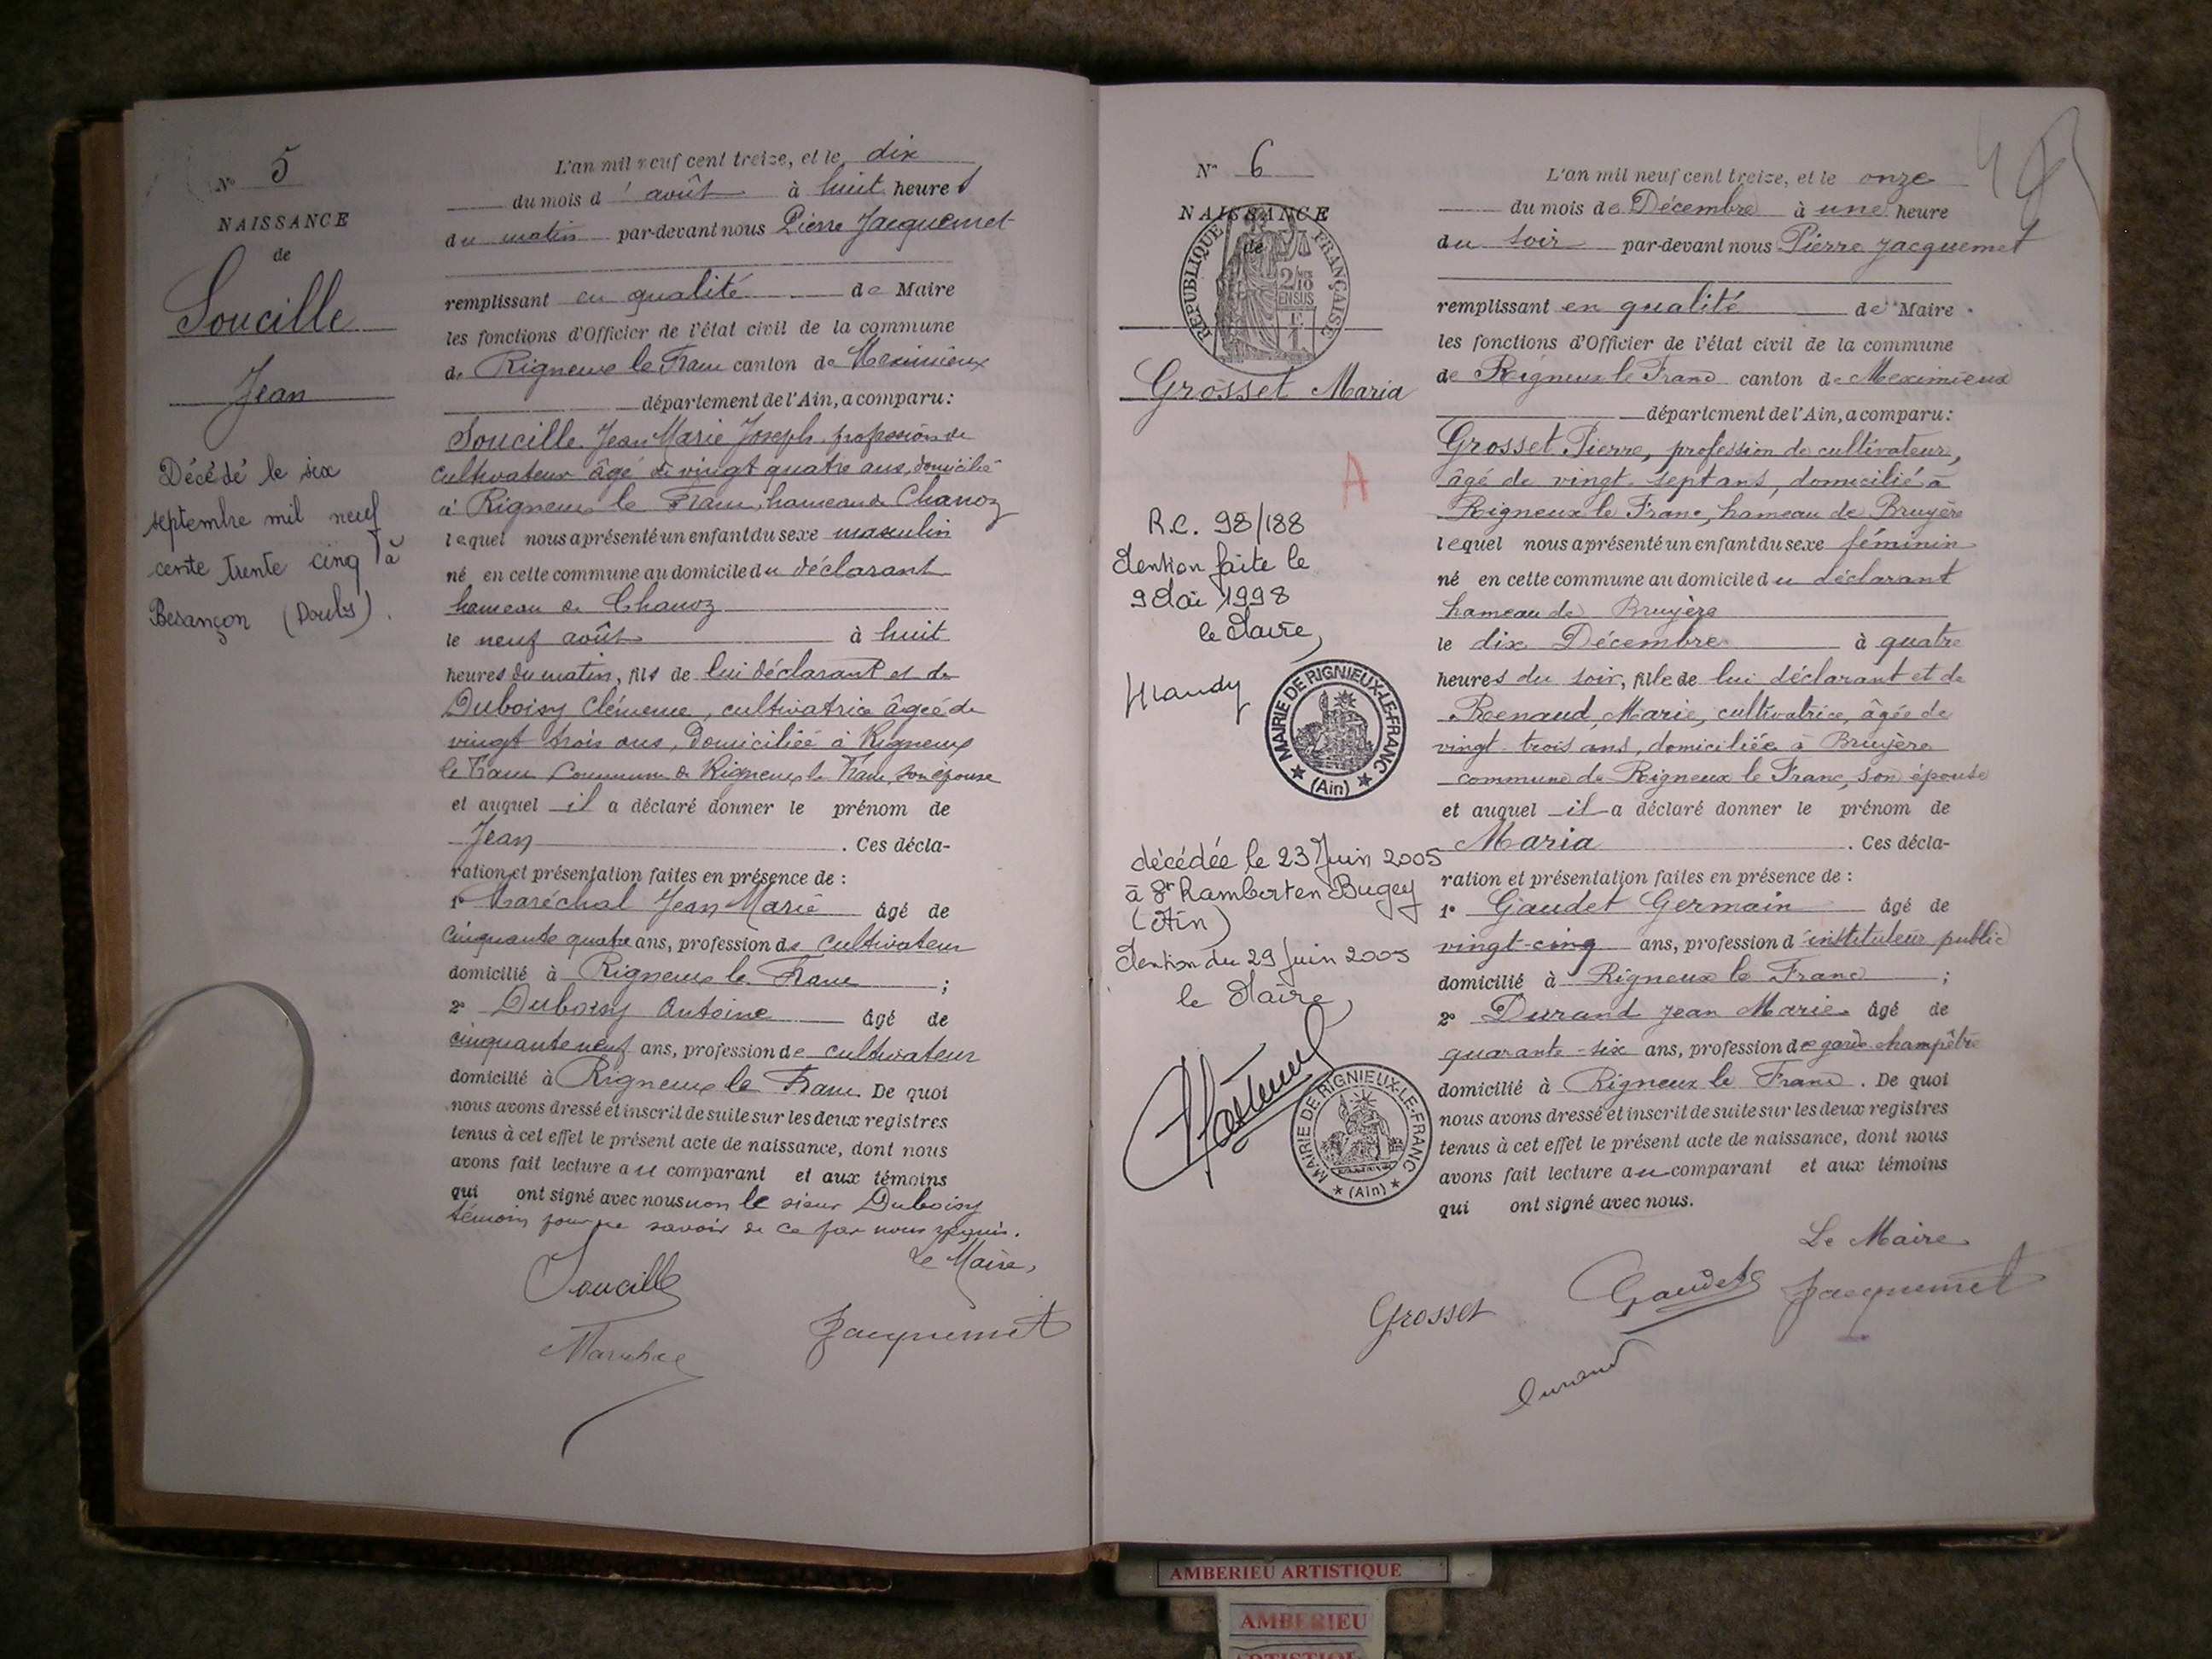 N° 5
NAISSANCE
de
Soucille
Jean
Décédé le six
septembre mil neuf
cente trente cinq à
Besançon (Doubs).
L'an mil neuf cent treize, et le dix
du mois d'août à huit heures
du matin par-devant nous Pierre Jacquemet
remplissant en qualité de Maire
les fonctions d'Officier de l'état civil de la commune
de Rigneux le Franc canton de Meximieux
département de l'Ain, a comparu :
Soucille Jean Marie Joseph profession de
cultivateur âgé de vingt quatre ans, domicilié
à Rigneux le Franc, hameau de Chanoz
lequel nous a présenté un enfant du sexe masculin
né en cette commune au domicile du déclarant
hameau de Chanoz
le neuf août à huit
heures du matin, fils de lui déclarant et de
Duboisy Clémence, cultivatrice âgée de
vingt trois ans, domiciliée à Rigneux
le Franc commune de Rigneux le Franc, son épouse
et auquel il a déclaré donner le prénom de
Jean . Ces décla-
ration et présentation faites en présence de :
1° Maréchal Jean Marie âgé de
cinquante quatre ans, profession de cultivateur
domicilié à Rigneux le Franc ;
2° Duboisy Antoine âgé de
cinquante neuf ans, profession de cultivateur
domicilié à Rigneux le Franc. De quoi
nous avons dressé et inscrit de suite sur les deux registres
tenus à cet effet le présent acte de naissance, dont nous
avons fait lecture au comparant et aux témoins
qui ont signé avec nous non le sieur Duboisy
témoin pour ne savoir de ce par nous requis.
Le Maire,
Soucille
Jacquemet
Maréchal
N° 6
NAISSANCE
de
RÉPUBLIQUE FRANÇAISE
2/10 EN SUS
Grosset Maria
A
R.C. 98/188
Mention faite le
9 Mai 1998
le Maire,
MAIRIE DE RIGNIEUX-LE-FRANC
(Ain)
décédée le 23 Juin 2005
à St Rambert en Bugey
(Ain)
Mention du 29 Juin 2005
le Maire,
MAIRIE DE RIGNIEUX-LE-FRANC
(Ain)
L'an mil neuf cent treize, et le onze
du mois de Décembre à une heure
du soir par-devant nous Pierre Jacquemet
remplissant en qualité de Maire
les fonctions d'Officier de l'état civil de la commune
de Rigneux le Franc canton de Meximieux
département de l'Ain, a comparu :
Grosset Pierre, profession de cultivateur,
âgé de vingt-sept ans, domicilié à
Rigneux le Franc, hameau de Bruyère
lequel nous a présenté un enfant du sexe féminin
né en cette commune au domicile du déclarant
hameau de Bruyère
le dix Décembre à quatre
heures du soir, fille de lui déclarant et de
Renaud Marie, cultivatrice, âgée de
vingt-trois ans, domiciliée à Bruyère
commune de Rigneux le Franc, son épouse
et auquel il a déclaré donner le prénom de
Maria . Ces décla-
ration et présentation faites en présence de :
1° Gaudet Germain âgé de
vingt-cinq ans, profession d'instituteur public
domicilié à Rigneux le Franc ;
2° Durand Jean Marie âgé de
quarante-six ans, profession de garde champêtre
domicilié à Rigneux le Franc. De quoi
nous avons dressé et inscrit de suite sur les deux registres
tenus à cet effet le présent acte de naissance, dont nous
avons fait lecture au comparant et aux témoins
qui ont signé avec nous.
Le Maire
Grosset Gaudet Jacquemet
Durand
AMBERIEU ARTISTIQUE
AMBERIEU
ARTISTIQUE